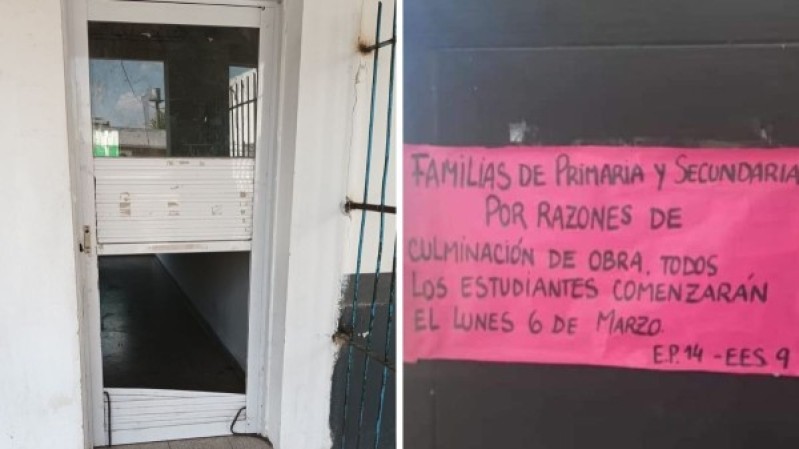 FAMILIAS DE PRIMARIA Y SECUNDARIA
POR RAZONES DE
CULMINACIÓN DE OBRA, TODOS
LOS ESTUDIANTES COMENZARÁN
EL LUNES 6 DE MARZO.
E.P. 14 - EES 9